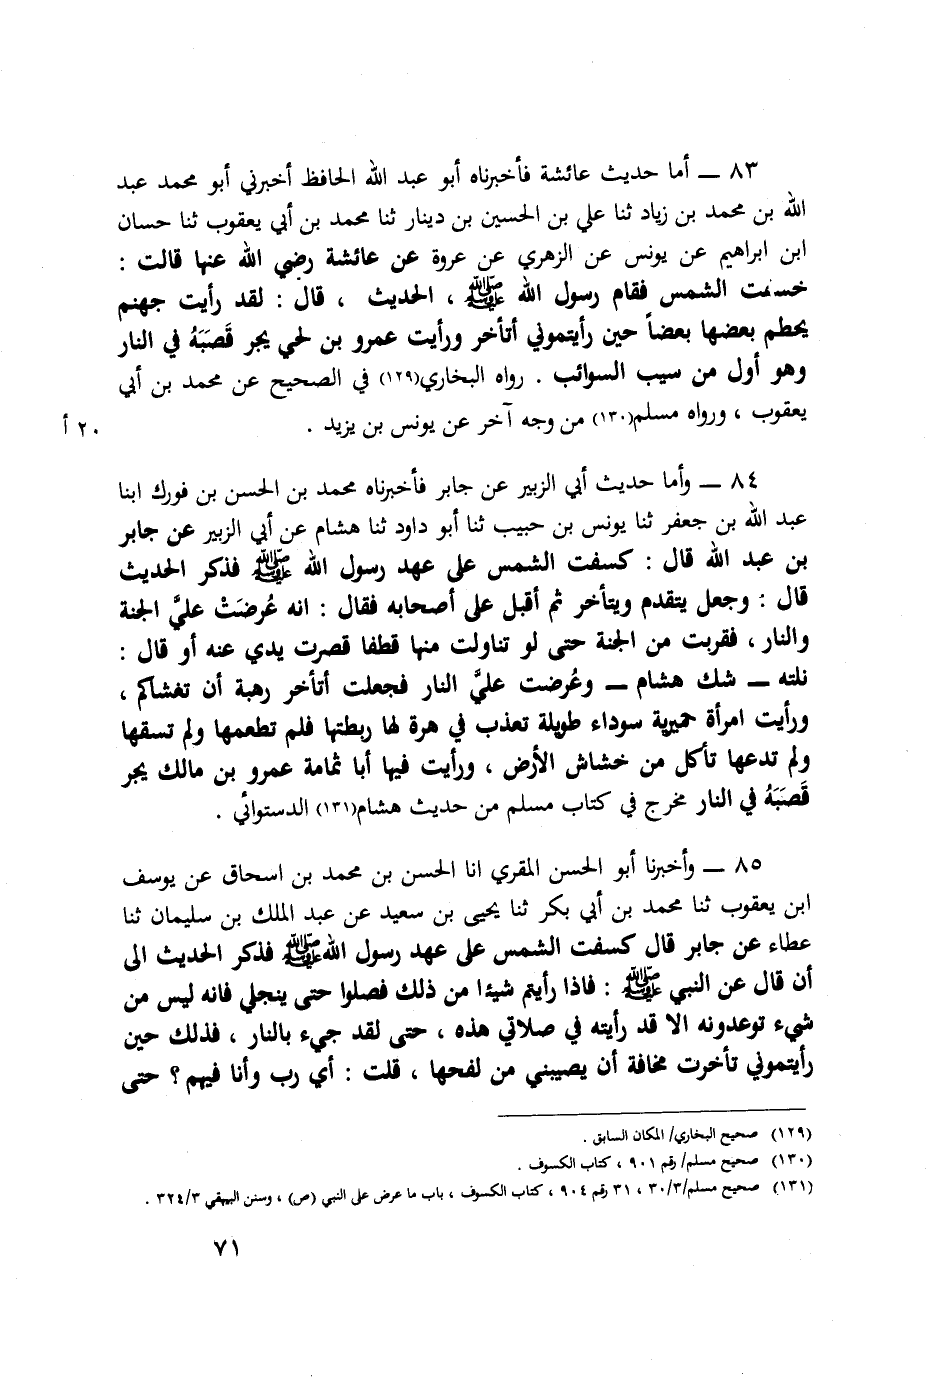 ٨٣ ــ أما حديث عائشة فأخبرناه أبو عبد الله الحافظ أخبرني أبو محمد عبد
الله بن محمد بن زياد ثنا علي بن الحسين بن دينار ثنا محمد بن أبي يعقوب ثنا حسان
ابن ابراهيم عن يونس عن الزهري عن عروة عن عائشة رضي الله عنها قالت :
خسفت الشمس فقام رسول الله ﷺ ، الحديث ، قال : لقد رأيت جهنم
يحطم بعضها بعضاً حين رأيتموني أتأخر ورأيت عمرو بن لحي يجر قَصَبَهُ في النار
وهو أول من سيب السوائب . رواه البخاري(١٢٩) في الصحيح عن محمد بن أبي
يعقوب ، ورواه مسلم(١٣٠) من وجه آخر عن يونس بن يزيد .
٢٠ أ
٨٤ ــ وأما حديث أبي الزبير عن جابر فأخبرناه محمد بن الحسن بن فورك ابنا
عبد الله بن جعفر ثنا يونس بن حبيب ثنا أبو داود ثنا هشام عن أبي الزبير عن جابر
بن عبد الله قال : كسفت الشمس على عهد رسول الله ﷺ فذكر الحديث
قال : وجعل يتقدم ويتأخر ثم أقبل على أصحابه فقال : انه عُرضَتْ عليَّ الجنة
والنار ، فقربت من الجنة حتى لو تناولت منها قطفا قصرت يدي عنه أو قال :
نلته ــ شك هشام ــ وعُرضت عليَّ النار فجعلت أتأخر رهبة أن تغشاكم ،
ورأيت امرأة حميرية سوداء طويلة تعذب في هرة لها ربطتها فلم تطعمها ولم تسقها
ولم تدعها تأكل من خشاش الأرض ، ورأيت فيها أبا ثمامة عمرو بن مالك يجر
قَصَبَهُ في النار مخرج في كتاب مسلم من حديث هشام(١٣١) الدستوائي .
٨٥ ــ وأخبرنا أبو الحسن المقري انا الحسن بن محمد بن اسحاق عن يوسف
ابن يعقوب ثنا محمد بن أبي بكر ثنا يحيى بن سعيد عن عبد الملك بن سليمان ثنا
عطاء عن جابر قال كسفت الشمس على عهد رسول الله ﷺ فذكر الحديث الى
أن قال عن النبي ﷺ : فاذا رأيتم شيئا من ذلك فصلوا حتى ينجلي فانه ليس من
شيء توعدونه الا قد رأيته في صلاتي هذه ، حتى لقد جيء بالنار ، فذلك حين
رأيتموني تأخرت مخافة أن يصيبني من لفحها ، قلت : أي رب وأنا فيهم ؟ حتى
(١٢٩) صحيح البخاري/ المكان السابق .
(١٣٠) صحيح مسلم/ رقم ٩٠١ ، كتاب الكسوف .
(١٣١) صحيح مسلم/٣٠/٣ ، ٣١ رقم ٩٠٤ ، كتاب الكسوف ، باب ما عرض على النبي (ص) ، وسنن البيهقي ٣٢٤/٣ .
٧١